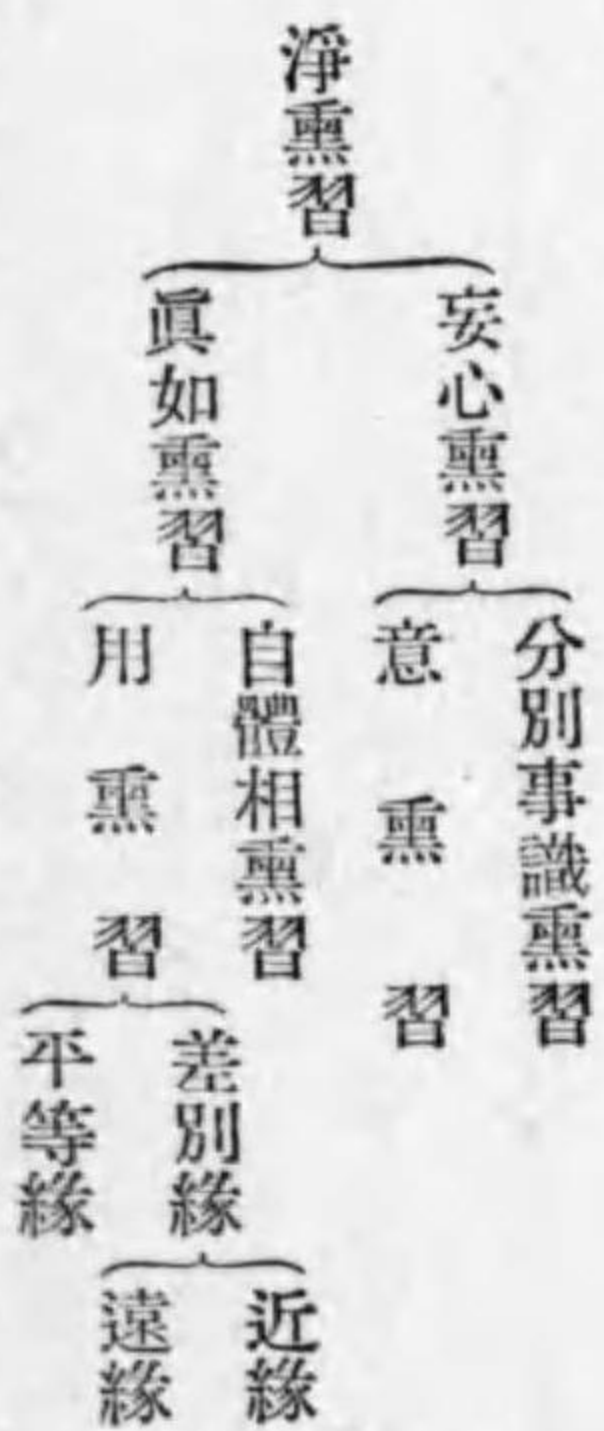 淨熏習
妄心熏習
分別事識熏習
意熏習
眞如熏習
自體相熏習
用熏習
差別緣
近緣
遠緣
平等緣